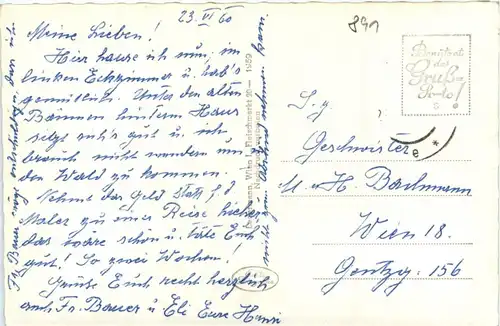 23. VI 60
Meine Lieben!
Hier hause ich nun, im
linken Eckzimmer u. hab's
gemütlich. Unter den alten
Bäumen hinterm Haus
sitzt sich's gut u. ich
brauch nicht wandern um in
den Wald zu kommen.
Nehmt das Geld statt f. d.
Maler zu einer Reise hieher,
das wäre schön u. täte Euch
gut! So zwei Wochen!
Grüße Euch recht herzlich
auch Fr. Bauer u. Eli Eure Hansi
Fr. Bauer mögt entschuldigen, dass ich
nicht zum Abschied nehmen kam.
Wien I, Fleischmarkt 20 — 1959
891
Benützt
das
Gruß-
Porto!
S. g.
Geschwister
M. u. H. Bachmann
Wien 18.
Gentzg. 156